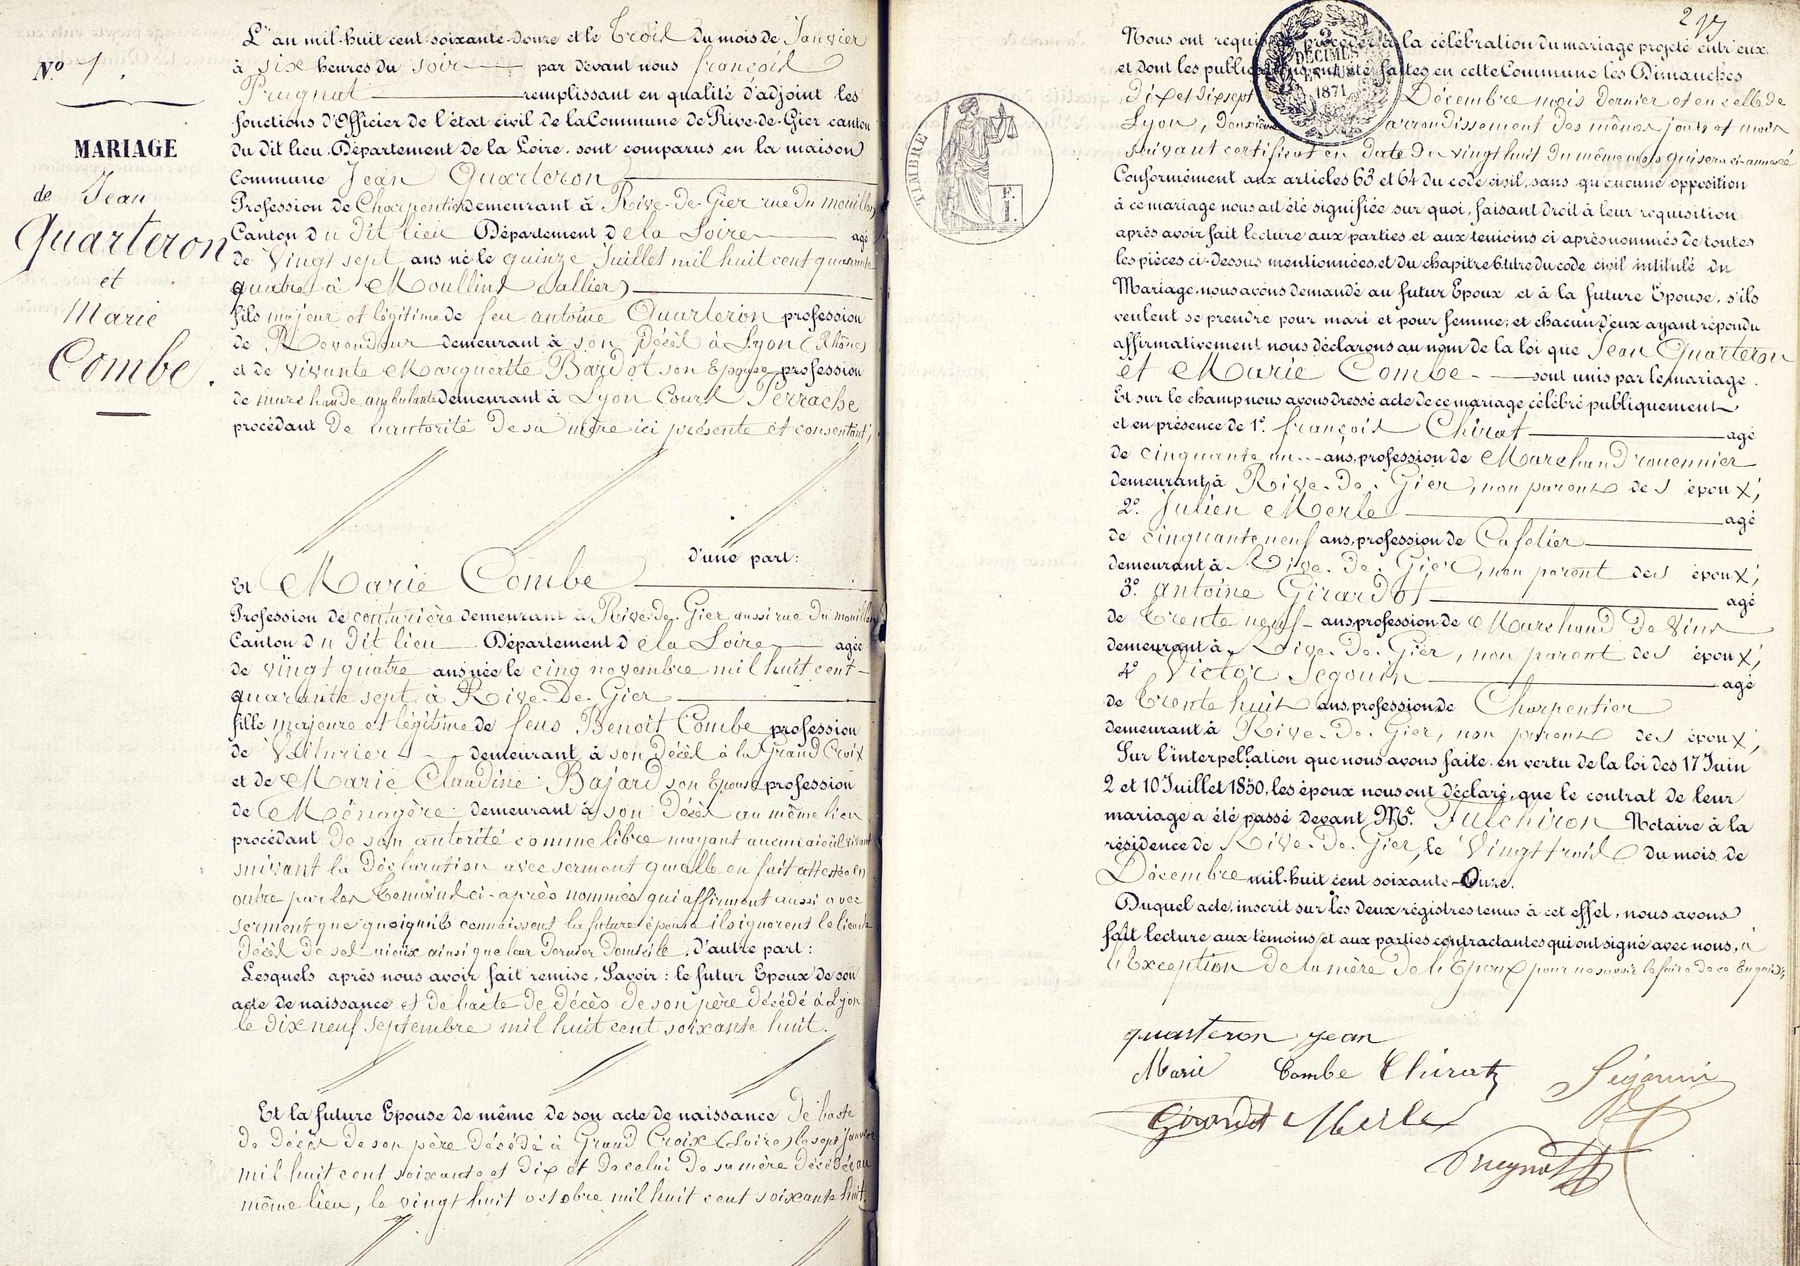 L'an mil-huit cent-soixante-douze et le Trois du mois de Janvier
à six heures du soir par devant nous françois
Prugnat remplissant en qualité d'adjoint les
fonctions d'Officier de l'état civil de la Commune de Rive-de-Gier canton
du dit lieu Département de la Loire. sont comparus en la maison
Commune Jean Quarteron
Profession de Charpentier demeurant à Rive-de-Gier rue du mouillon
Canton du dit lieu Département de la Loire agé
de Vingt sept ans né le quinze Juillet mil huit cent quarante
quatre à Moullins (allier)
fils majeur et légitime de feu antoine Quarteron profession
de Revendeur demeurant à son décès à Lyon (Rhône)
et de vivante Marguerite Bardot son Epouse profession
de marchande ambulante demeurant à Lyon Cours Perrache
procédant de l'autorité de sa mère ici présente et consentant;
d'une part:
Et Marie Combe
Profession de couturière demeurant à Rive-de-Gier aussi rue du mouillon
Canton du dit lieu Département de la Loire agée
de vingt quatre ans née le cinq novembre mil huit cent
quarante sept à Rive-De-Gier
fille majeure et légitime de feus Benoit Combe profession
de Voiturier demeurant à son décès à la Grand Croix
et de Marie Claudine Bajard son Epouse profession
de Ménagère demeurant à son Décès au même lieu
procédant de son autorité comme libre n'ayant aucun aieul vivant
suivant la Déclaration avec serment qu'elle en fait attestée en
outre par les temoins ci-après nommés qui affirment aussi avec
serment que quoiqu'ils connaissent la future épouse ils ignorent le lieu du
décès de ses aieux ainsi que leur dernier domicile. D'autre part:
Lesquels après nous avoir fait remise, Savoir: le futur Epoux de son
acte de naissance et de l'acte de décès de son père décédé à Lyon
le dix neuf septembre mil huit cent soixante huit.
Et la future Epouse de même de son acte de naissance de l'acte
de décès de son père décédé à Grand Croix (Loire) le sept Janvier
mil huit cent soixante et dix et de celui de sa mère décédée au
même lieu, le vingt huit octobre mil huit cent soixante huit.
No 1.
MARIAGE
de Jean
Quarteron
et
Marie
Combe.
217
TIMBRE
2
DÉCIMES
EN SUS
1871
Nous ont requis procéder à la célébration du mariage projeté entr'eux,
et dont les publications ont été faites en cette Commune les Dimanches
dix et dix sept Décembre mois dernier et en celle de
Lyon, deuxième arrondissement des mêmes jours et mois
suivant certificat en date du vingt huit du même mois qui sera ci-annexé
Conformément aux articles 63 et 64 du code civil, sans qu'aucune opposition
à ce mariage nous ait été signifiée sur quoi, faisant droit à leur requisition
après avoir fait lecture aux parties et aux temoins ci après nommés de toutes
les pièces ci-dessus mentionnées, et du chapitre 6 titre du code civil intitulé du
Mariage, nous avons demandé au futur Epoux et à la future Epouse, s'ils
veulent se prendre pour mari et pour femme; et chacun d'eux ayant répondu
affirmativement nous déclarons au nom de la loi que Jean Quarteron
et Marie Combe sont unis par le mariage.
Et sur le champ nous avons dressé acte de ce mariage, célébré publiquement
et en présence de 1º. françois Chirat agé
de cinquante un ans, profession de Marchand rouennier
demeurant à Rive-De-Gier, non parent des époux;
2º. Julien Merle agé
de cinquante neuf ans, profession de Cafetier
demeurant à Rive-De-Gier, non parent des époux;
3º. antoine Girardot agé
de trente neuf ans, profession de Marchand de Vins
demeurant à Rive-De-Gier, non parent des époux;
4º Victor Segouin agé
de trente huit ans, profession de Charpentier
demeurant à Rive-De-Gier, non parent des époux;
Sur l'interpellation que nous avons faite en vertu de la loi des 17 Juin
2 et 10 Juillet 1850, les époux nous ont déclaré, que le contrat de leur
mariage a été passé devant Me. Fulchiron Notaire à la
résidence de Rive-De-Gier, le Vingt trois du mois de
Décembre mil-huit cent soixante-Onze.
Duquel acte, inscrit sur les deux régistres tenus à cet effet, nous avons
fait lecture aux témoins et aux parties contractantes qui ont signé avec nous, à
l'Exception de la mère de l'Epoux pour ne savoir le faire de ce Enquise
quarteron jean
Marie Combe Chirat Segouin
Girardot Merle
Prugnat